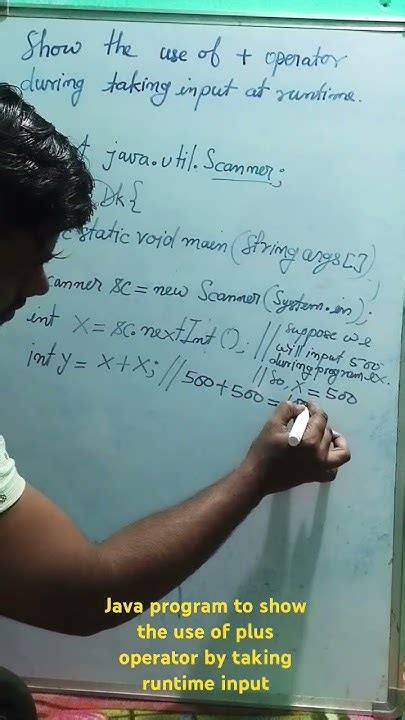 Show the use of + operator
during taking input at runtime.
java.util.Scanner;
Dk{
static void main(String args[])
canner sc = new Scanner(System.in);
int x = sc.nextInt(); // suppose we
will input 500
during program ex.
int y = x+x; // 500+500=
// So, x = 500
Java program to show
the use of plus
operator by taking
runtime input